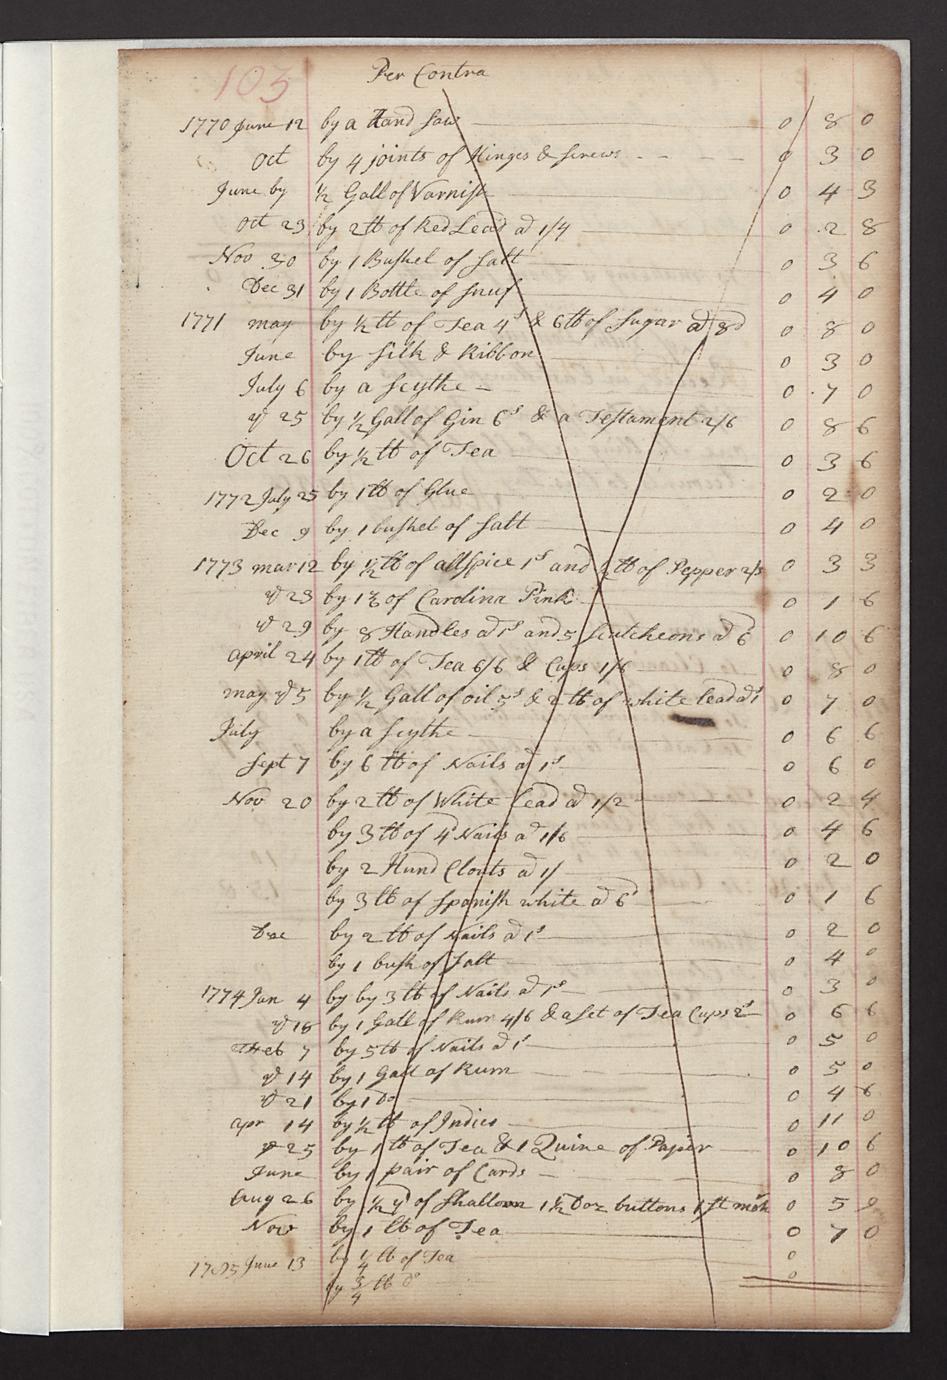 103
Per Contra
1770 June 12 by a Hand Saw 0 8 0
Oct by 4 joints of Hinges & Screws 0 3 0
June by ½ Gall of Varnish 0 4 3
Oct 23 by 2 lb of Red Lead ad 1/4 0 2 8
Nov 30 by 1 Bushel of Salt 0 3 6
Dec 31 by 1 Bottle of Snuf 0 4 0
1771 may by ½ lb of Tea 4s & 6 lb of Sugar ad 8d 0 8 0
June by Silk & Ribbon 0 3 0
July 6 by a Scythe 0 7 0
ye 25 by ½ Gall of Gin 6s & a Testament 2/6 0 8 6
Oct 26 by ½ lb of Tea 0 3 6
1772 July 25 by 1 lb of Glue 0 2 0
Dec 9 by 1 bushel of Salt 0 4 0
1773 mar 12 by ½ lb of allspice 1s and ½ lb of Pepper 2/3 0 3 3
ye 23 by 1 ℥ of Carolina Pink 0 1 6
ye 29 by 8 Handles ad 1s and 5 Scutcheons ad 6 0 10 6
april 24 by 1 lb of Tea 6/6 & Cups 1/6 0 8 0
may ye 5 by ½ Gall of oil 5s & 2 lb of white lead ad 1s 0 7 0
July by a Scythe 0 6 6
Sept 7 by 6 lb of Nails ad 1s 0 6 0
Nov 20 by 2 lb of White Lead ad 1/2 0 2 4
by 3 lb of 4d Nails ad 1/6 0 4 6
by 2 Hund Clouts ad 1/ 0 2 0
by 3 lb of Spanish white ad 6d 0 1 6
Dec by 2 lb of Nails ad 1s 0 2 0
by 1 bush of Salt 0 4 0
1774 Jan 4 by by 3 lb of Nails ad 1s 0 3 0
ye 18 by 1 Gall of Rum 4/6 & a Set of Tea Cups 2s 0 6 6
Feb 7 by 5 lb of Nails ad 1s 0 5 0
ye 14 by 1 Gall of Rum 0 5 0
ye 21 by 1 Do 0 4 6
apr 14 by ½ lb of Indico 0 11 0
ye 25 by 1 lb of Tea & 1 Quine of Paper 0 10 6
June by 1 pair of Cards 0 8 0
Aug 26 by ½ yd of Shalloon 1½ Doz buttons 1 st moh 0 5 9
Nov by 1 lb of Tea 0 7 0
1775 June 13 by ¼ lb of Tea 0
by ¾ lb do 0